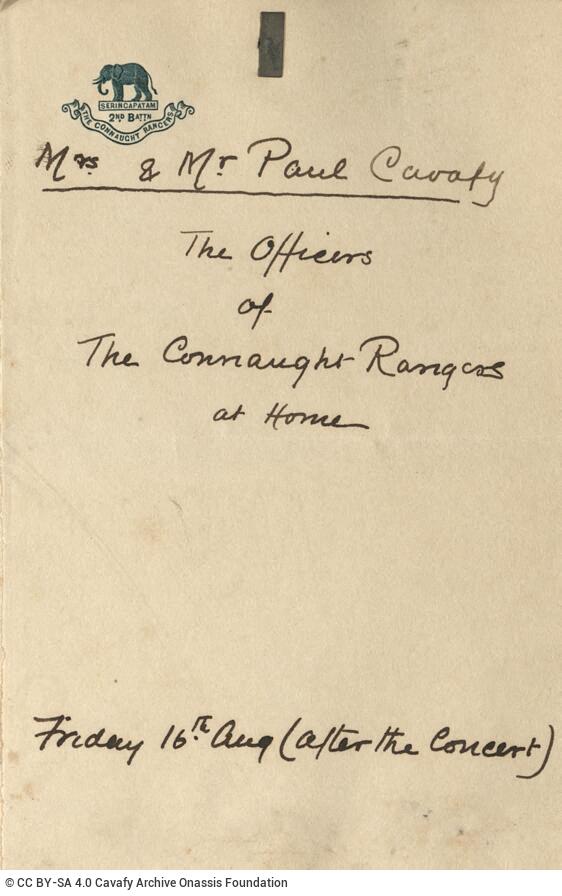 SERINGAPATAM
2ND BATTN
THE CONNAUGHT RANGERS
Mrs. & Mr Paul Cavafy
The Officers
of
The Connaught Rangers
at Home
Friday 16th Aug (after the Concert)
© CC BY-SA 4.0 Cavafy Archive Onassis Foundation